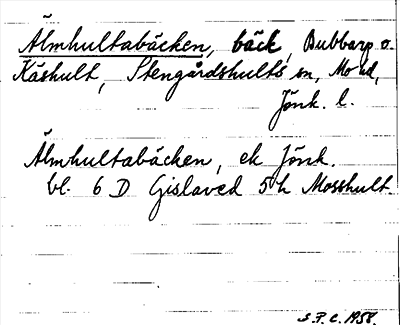 Älmhultabäcken, bäck, Bubbarp o.
Kåshult, Stengårdshults sn, Mo hd,
Jönk. l.
Älmhultabäcken, ek Jönk.
bl. 6 D Gislaved 5 h Mosshult.
S.F.C. 1958.